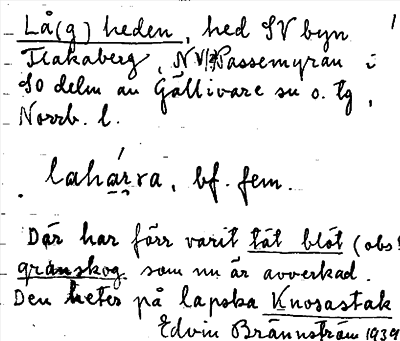 Lå(g)heden, hed SV byn 1
Flakaberg, NV Passemyran i
SO delen av Gällivare sn o. tg,
Norrb. l.
lahárra, bf. fem.
Där har förr varit tät blöt (obs!
granskog som nu är avverkad.
Den heter på lapska Knosastak
Edvin Brännström 1939